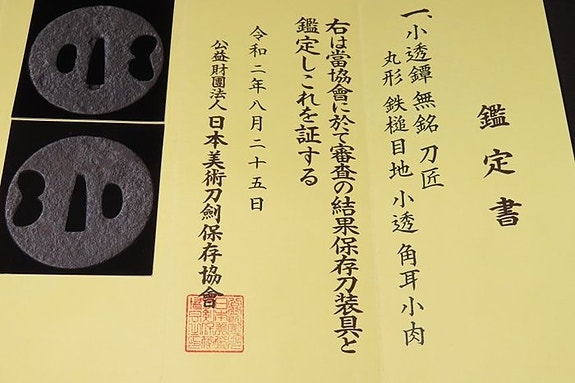 鑑定書
一、小透鐔 無銘 刀匠
丸形 鉄槌目地 小透 角耳小肉
右は當協會に於て審査の結果保存刀装具と
鑑定しこれを証する
令和二年八月二十五日
公益財團法人 日本美術刀劍保存協會